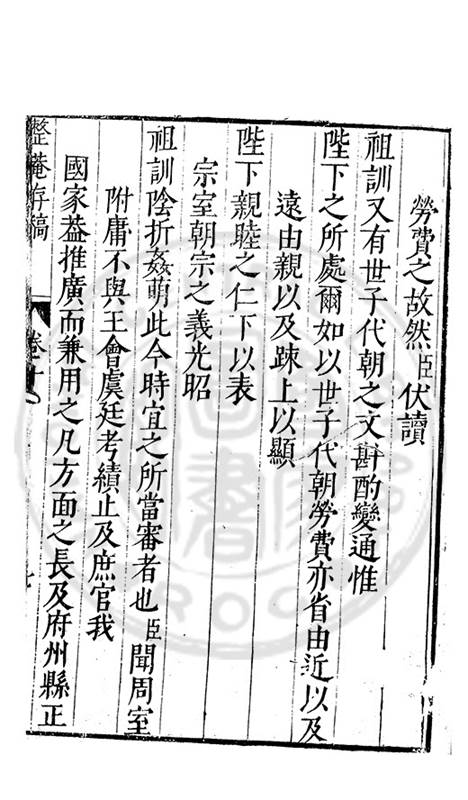 勞費之故然臣伏讀
祖訓又有世子代朝之文斟酌變通惟
陛下之所處爾如以世子代朝勞費亦省由近以及
遠由親以及疎上以顯
陛下親睦之仁下以表
宗室朝宗之義光昭
祖訓陰折姦萌此今時宜之所當審者也臣聞周室
附庸不與王會虞廷考績止及庶官我
國家葢推廣而兼用之凡方面之長及府州縣正
整菴存稿
卷十
七